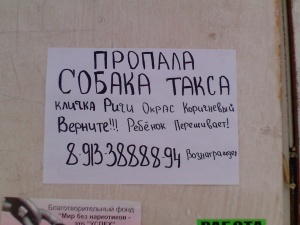 ПРОПАЛА
СОБАКА ТАКСА
КЛИЧКА Ричи Окрас Коричневый
Верните!!! Ребёнок Переживает!
8-913-38888-94
Благотворительный фонд
"Мир без наркотиков -
это "УСПЕХ"
РАБОТА